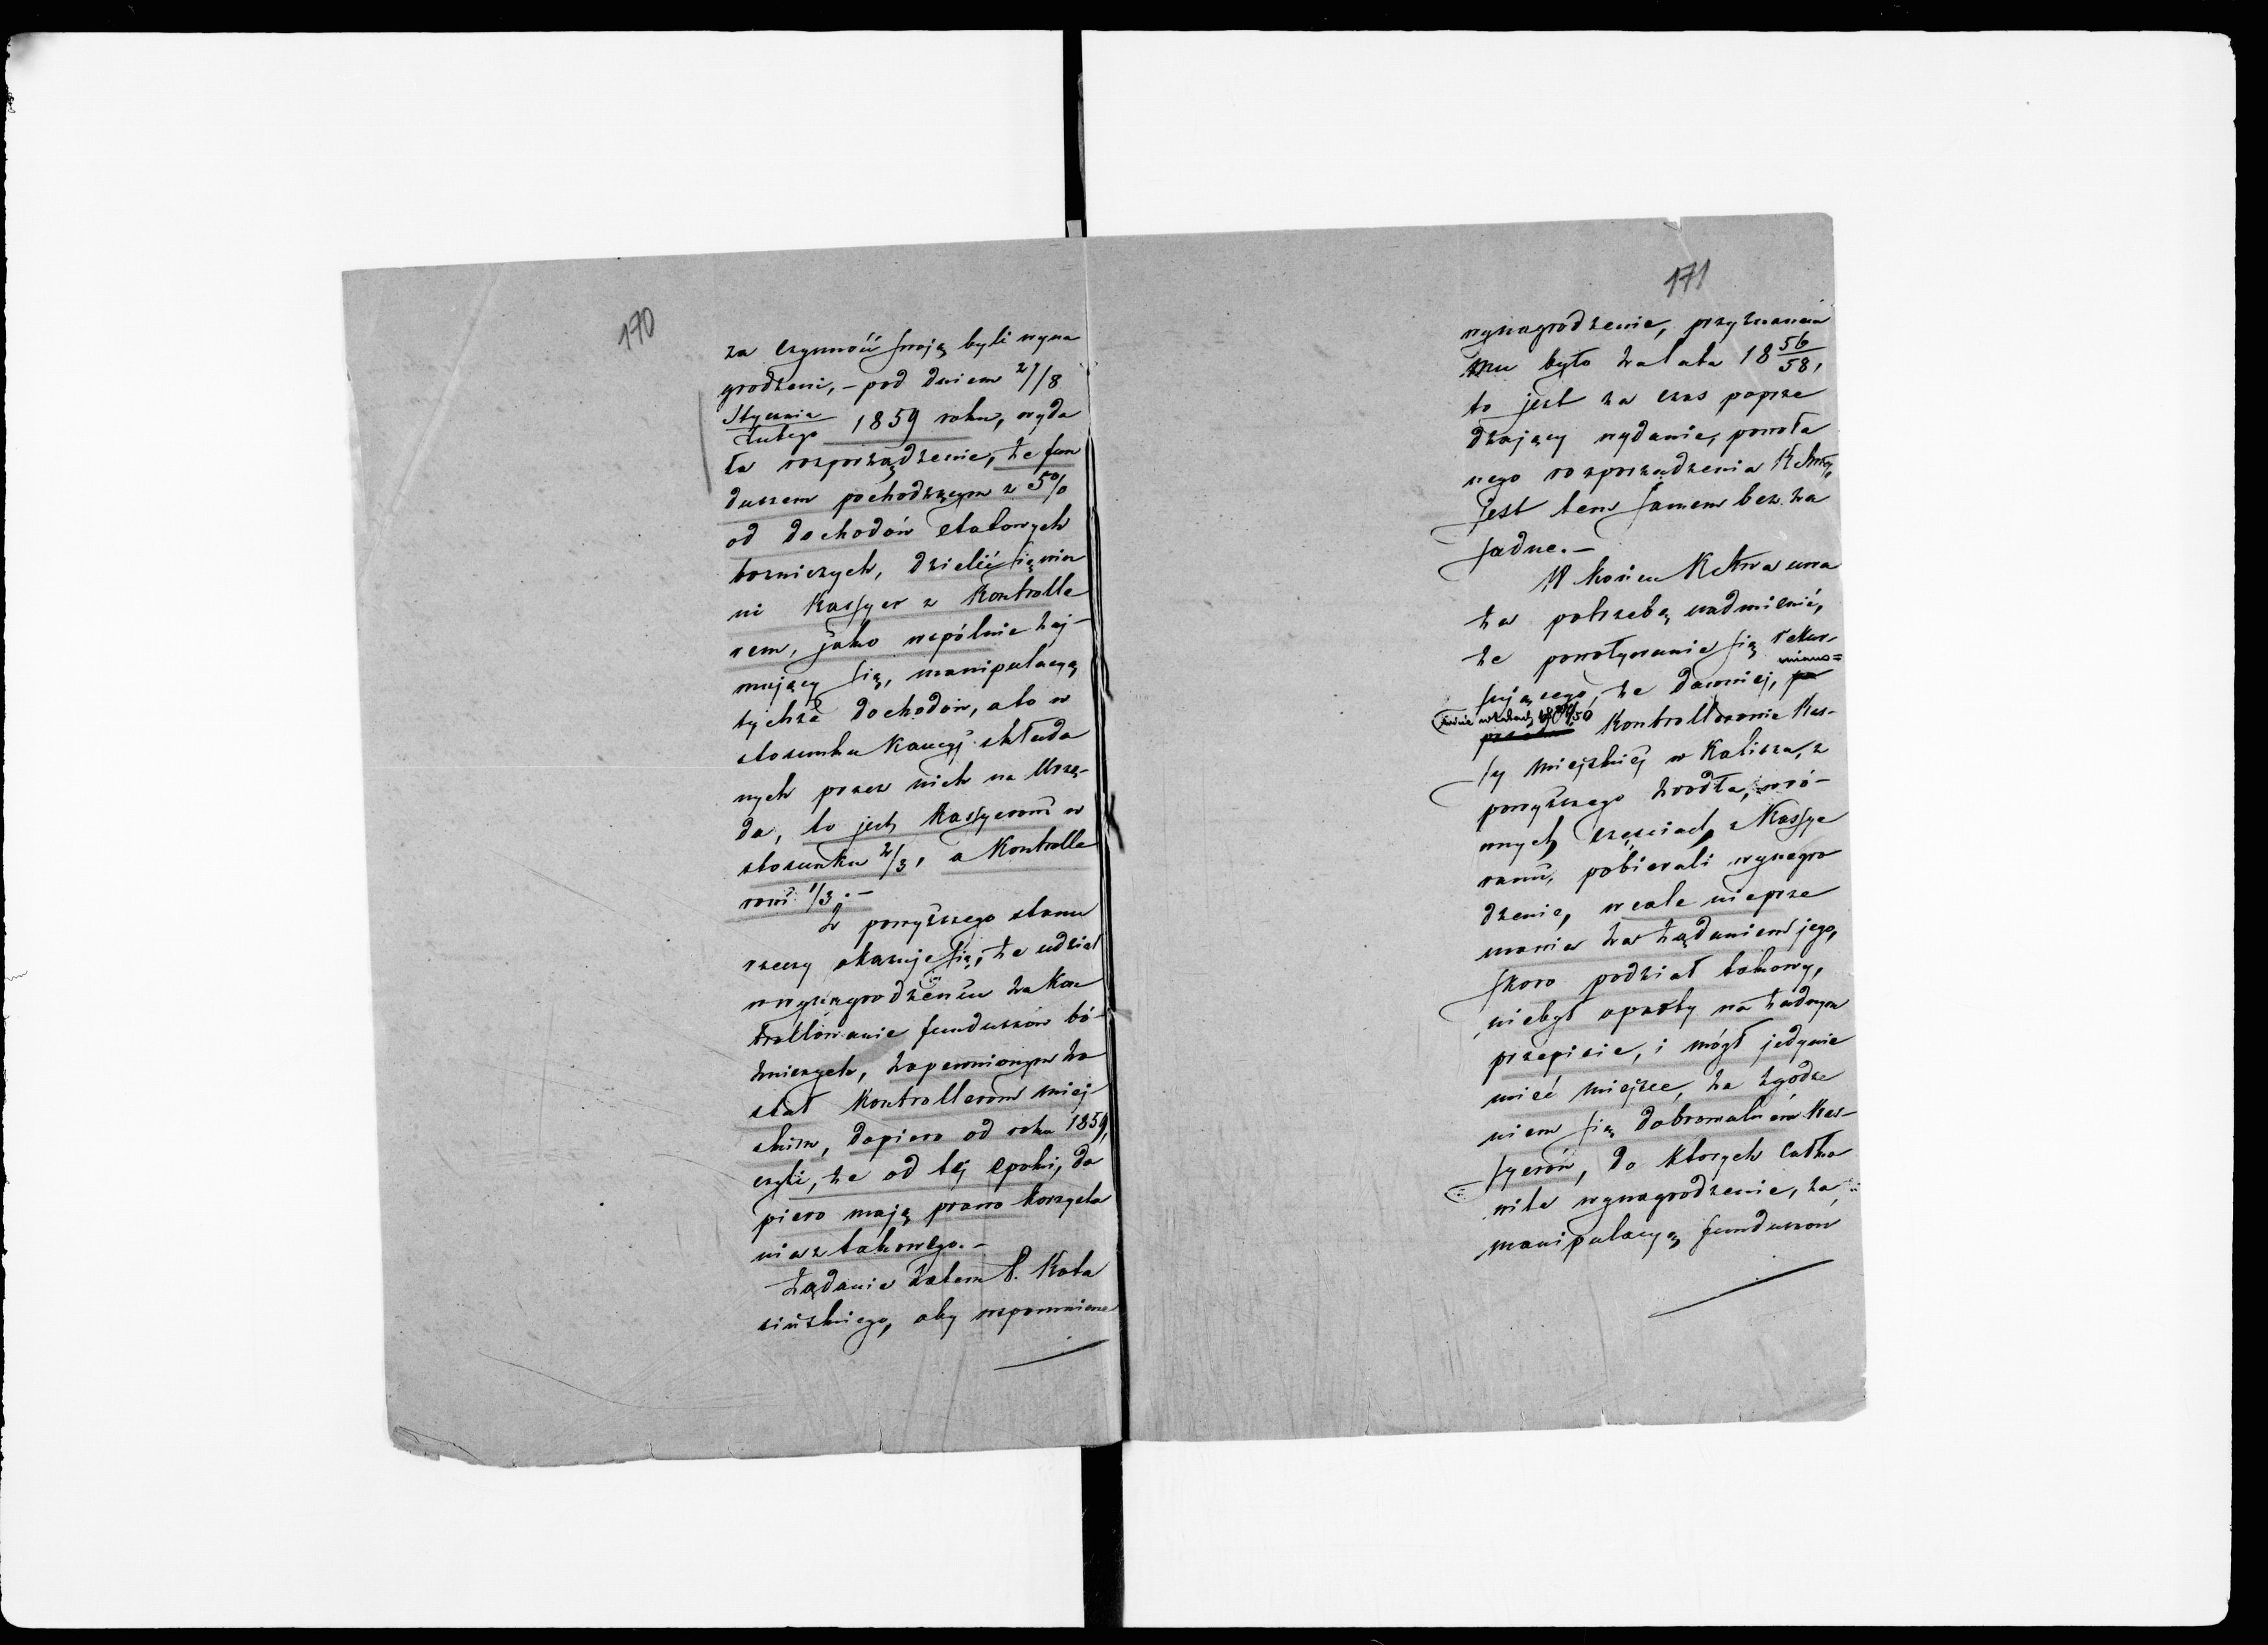 170
za czynność swoją byli wyna
grodzeni, – pod dniem 27/8
Stycznia
Lutego 1859 roku, wyda
ła rozporządzenie, że fun
duszem pochodzącym z 5%
od dochodów etatowych
bożniczych, dzielić się win
ni Kassyer z Kontrolle
rem, jako wspólnie zaj-
mujący się, manipulacyą
tychże dochodów, a to w
stosunku Kaucyj składa
nych przez nich na Urzę-
da, to jest Kassyerowi w
stosunku 2/3, a Kontrolle
rowi 1/3. –
Z powyższego stanu
rzeczy okazuje się, że udział
w wynagrodzeniu za Kon
trollowanie funduszów bó-
żniczych, zapewnionym zo
stał Kontrollerom miej-
skim, dopiero od roku 1859,
czyli, że od tej epoki, do
piero mają prawo korzysta
nia z takowego. –
Żądanie zatem P. Kota
sińskiego, aby wspomnione
171
wynagrodzenie, przyznanem
mu było za lata 18 56/58,
to jest za czas poprze
dzający wydanie, powoła
nego rozporządzenia
jest tem samem bez za
sadne. –
W końcu Rttwa uwa
ża potrzebę nadmienić,
że powoływanie się rekur-
sującego, że dawniej, miano=
wicie w latach 50 Kontrollerowie Kas-
sy Miejskiej w Kaliszu, z
powyższego źrodła, w ró-
wnych częściach z Kassye
rami, pobierali wynagro
dzenie, wcale nieprze
mawia za żądaniem jego,
skoro podział takowy,
niebył oparty na żadnym
przepisie, i mógł jedynie
mieć miejsce, za zgodze
niem się dobrowolnem Kas-
syerów, do których całko
wite wynagrodzenie, za
manipulacyą funduszów